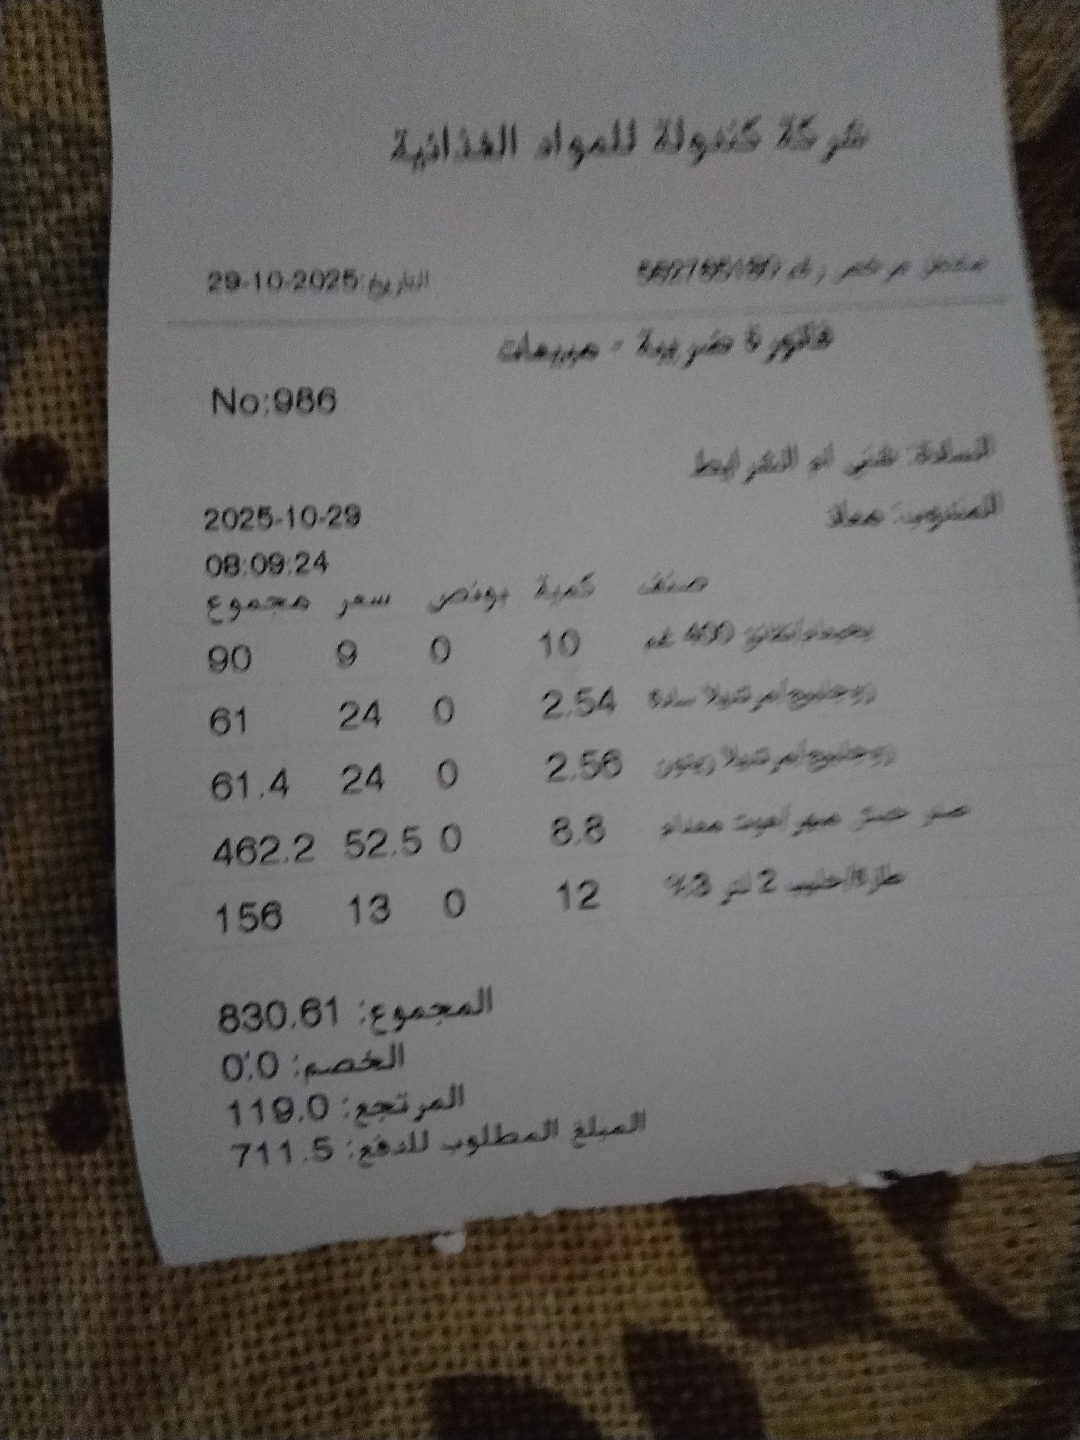 شركة كندولة للمواد الغذائية
مشتغل مرخص رقم
التاريخ: 29-10-2025
فاتورة ضريبة - مبيعات
No:986
السادة:
المندوب: معاذ
2025-10-29
08:09:24
صنف كمية بونص سعر مجموع
400 غم 10 0 9 90
سادة 2.54 0 24 61
زيتون 2.56 0 24 61.4
8.8 0 52.5 462.2
طارة/حليب 2 لتر 3% 12 0 13 156
المجموع: 830.61
الخصم: 0.0
المرتجع: 119.0
المبلغ المطلوب للدفع: 711.5